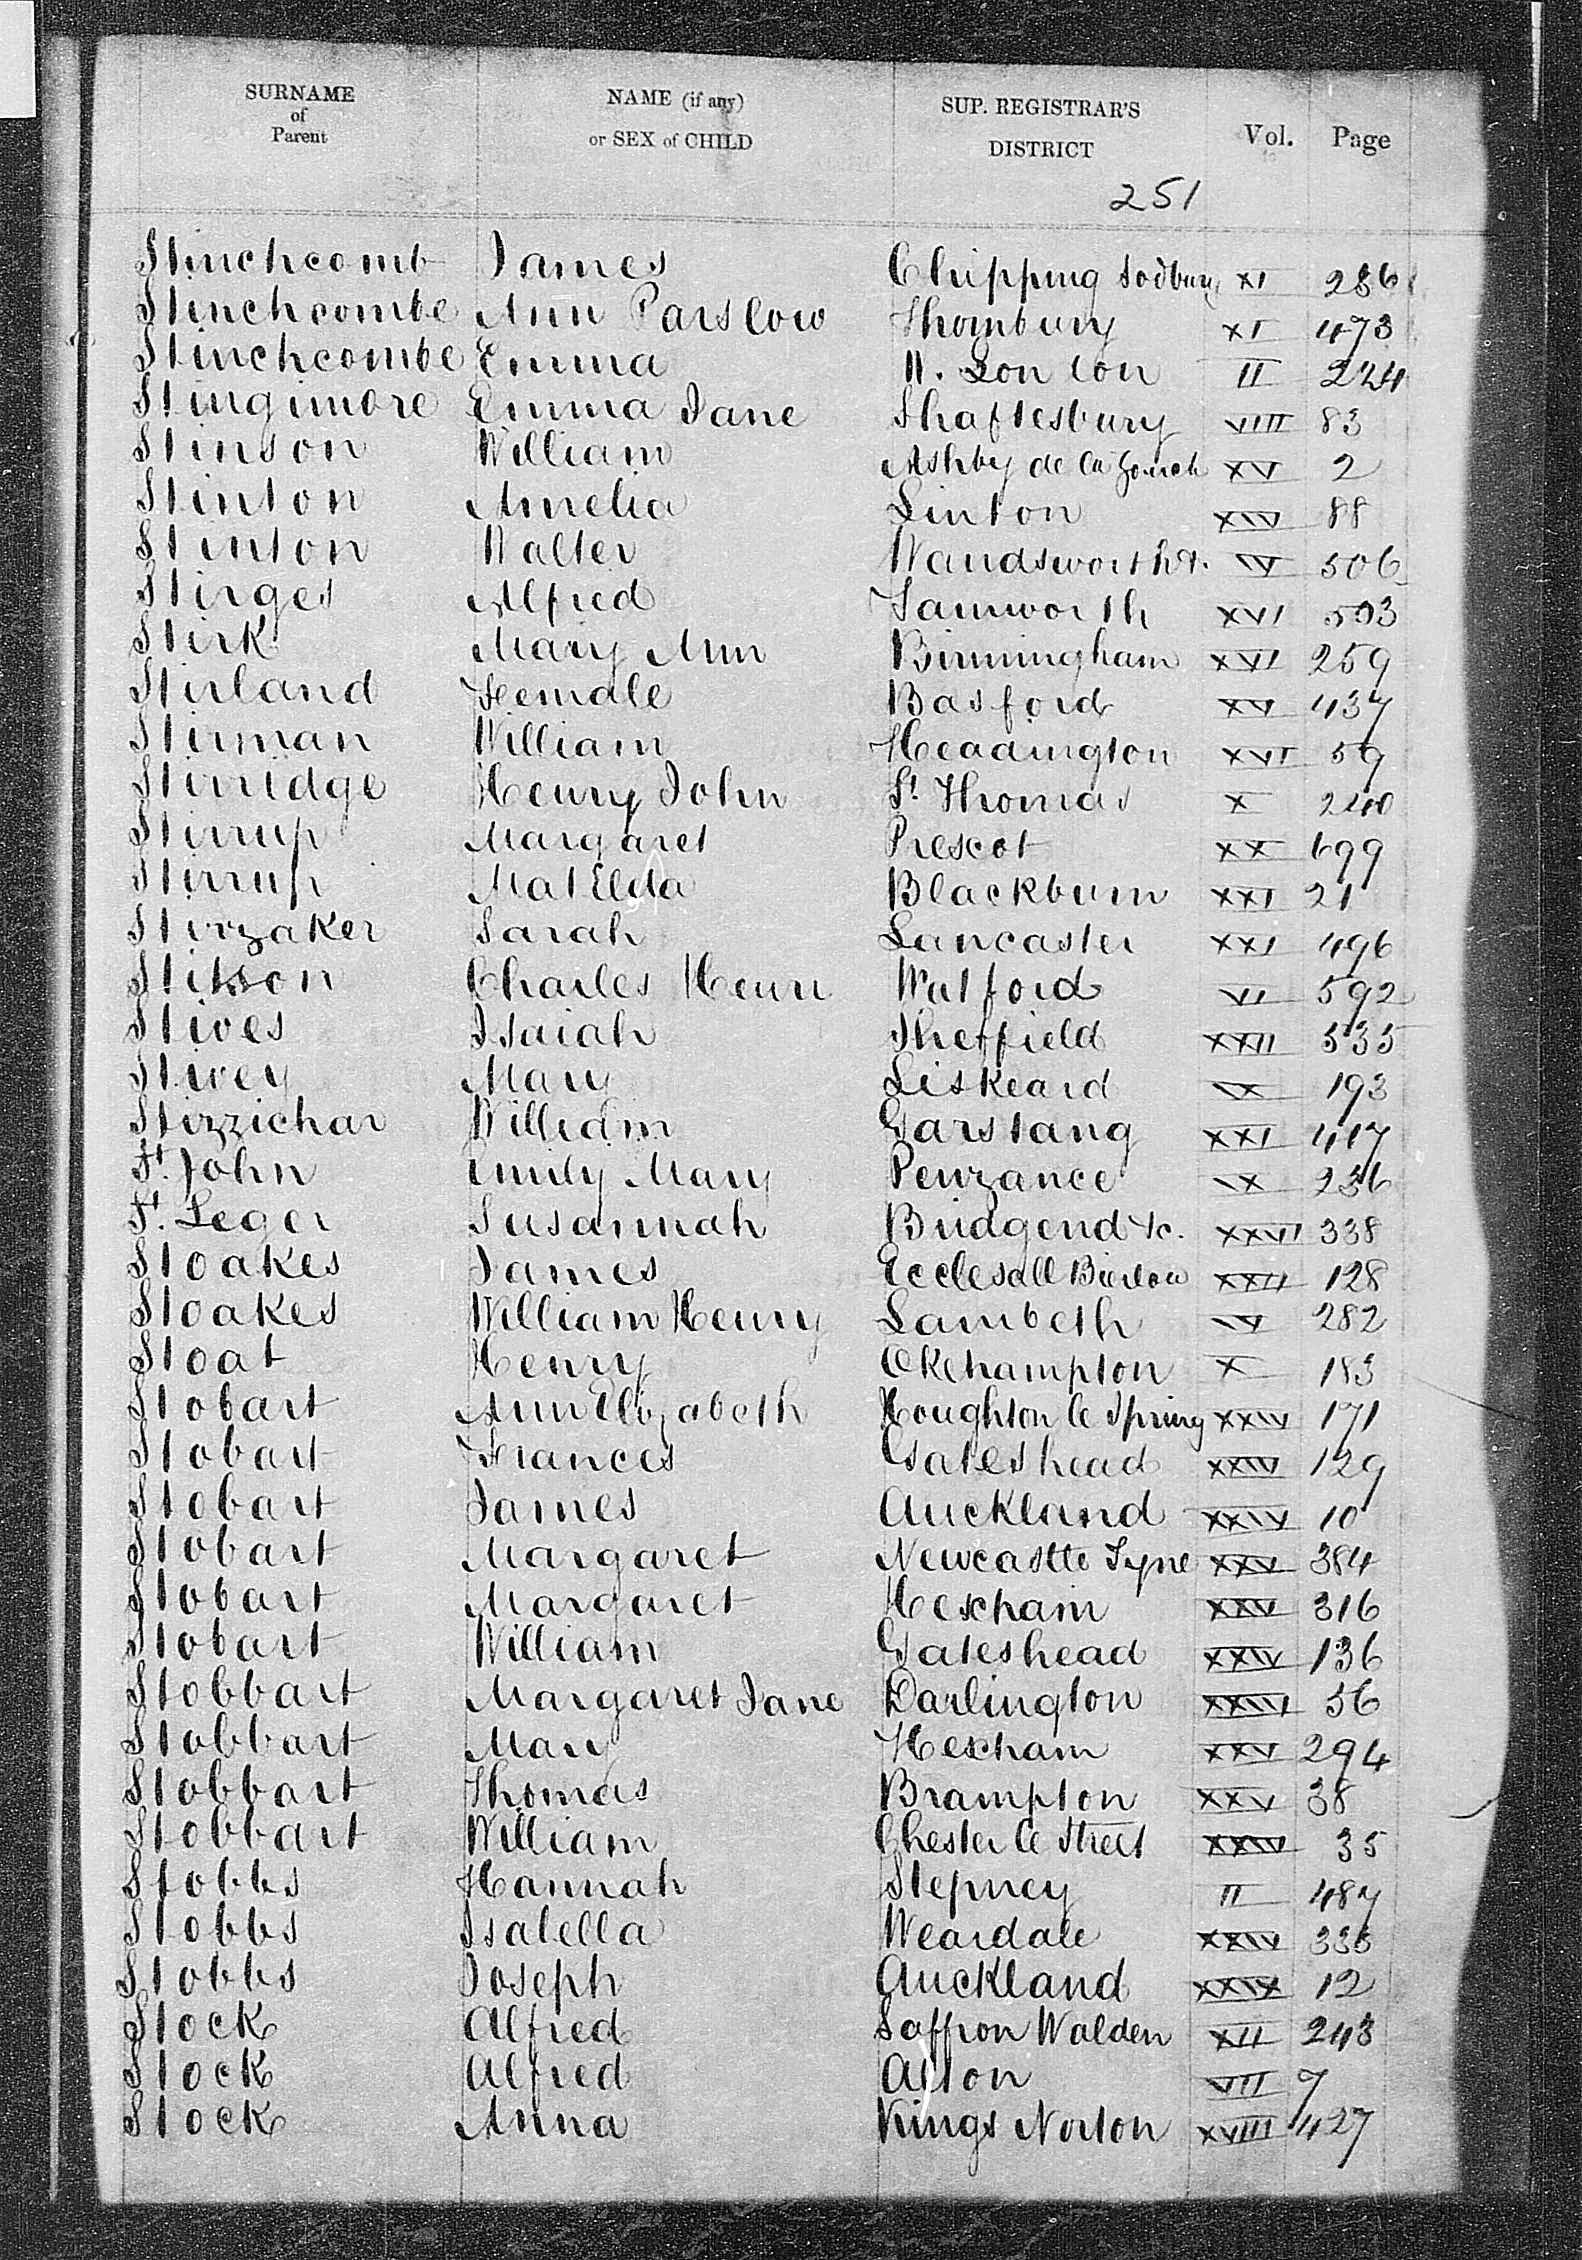 SURNAME of Parent NAME (if any) or SEX of CHILD SUP. REGISTRAR'S DISTRICT Vol. Page
251
Stinchcomb James Chipping Sodbury XI 236
Stinchcombe Ann Parslow Thornbury XI 473
Stinchcombe Emma W. London II 224
Stingimore Emma Jane Shaftesbury VIII 83
Stinson William Ashby de la Zouch XV 2
Stinton Amelia Linton XIV 88
Stinton Walter Wandsworth &. IV 506
Stirges Alfred Tamworth XVI 593
Stirk Mary Ann Birmingham XVI 259
Stirland Female Basford XV 437
Stirman William Headington XVI 59
Stirridge Henry John St. Thomas X 240
Stirrup Margaret Prescot XX 699
Stirrup Matilda Blackburn XXI 21
Stirzaker Sarah Lancaster XXI 496
Stitson Charles Henri Watford VI 592
Stives Isaiah Sheffield XXII 535
Stivey Mary Liskeard IX 193
Stizzichar William Garstang XXI 417
St. John Emily Mary Penzance IX 236
St. Leger Susannah Bridgend &c. XXVI 338
Stoakes James Ecclesall Bierlow XXII 128
Stoakes William Henry Lambeth IV 282
Stoat Henry Okehampton X 183
Stobart Ann Elizabeth Houghton le Spring XXIV 171
Stobart Frances Gateshead XXIV 129
Stobart James Auckland XXIV 10
Stobart Margaret Newcastle Tyne XXV 384
Stobart Margaret Hexham XXV 316
Stobart William Gateshead XXIV 136
Stobbart Margaret Jane Darlington XXIV 56
Stobbart Mary Hexham XXV 294
Stobbart Thomas Brampton XXV 38
Stobbart William Chester le Street XXIV 35
Stobbs Hannah Stepney II 487
Stobbs Isabella Weardale XXIV 335
Stobbs Joseph Auckland XXIV 12
Stock Alfred Saffron Walden XII 243
Stock Alfred Alton VII 7
Stock Anna Kings Norton XVIII 427